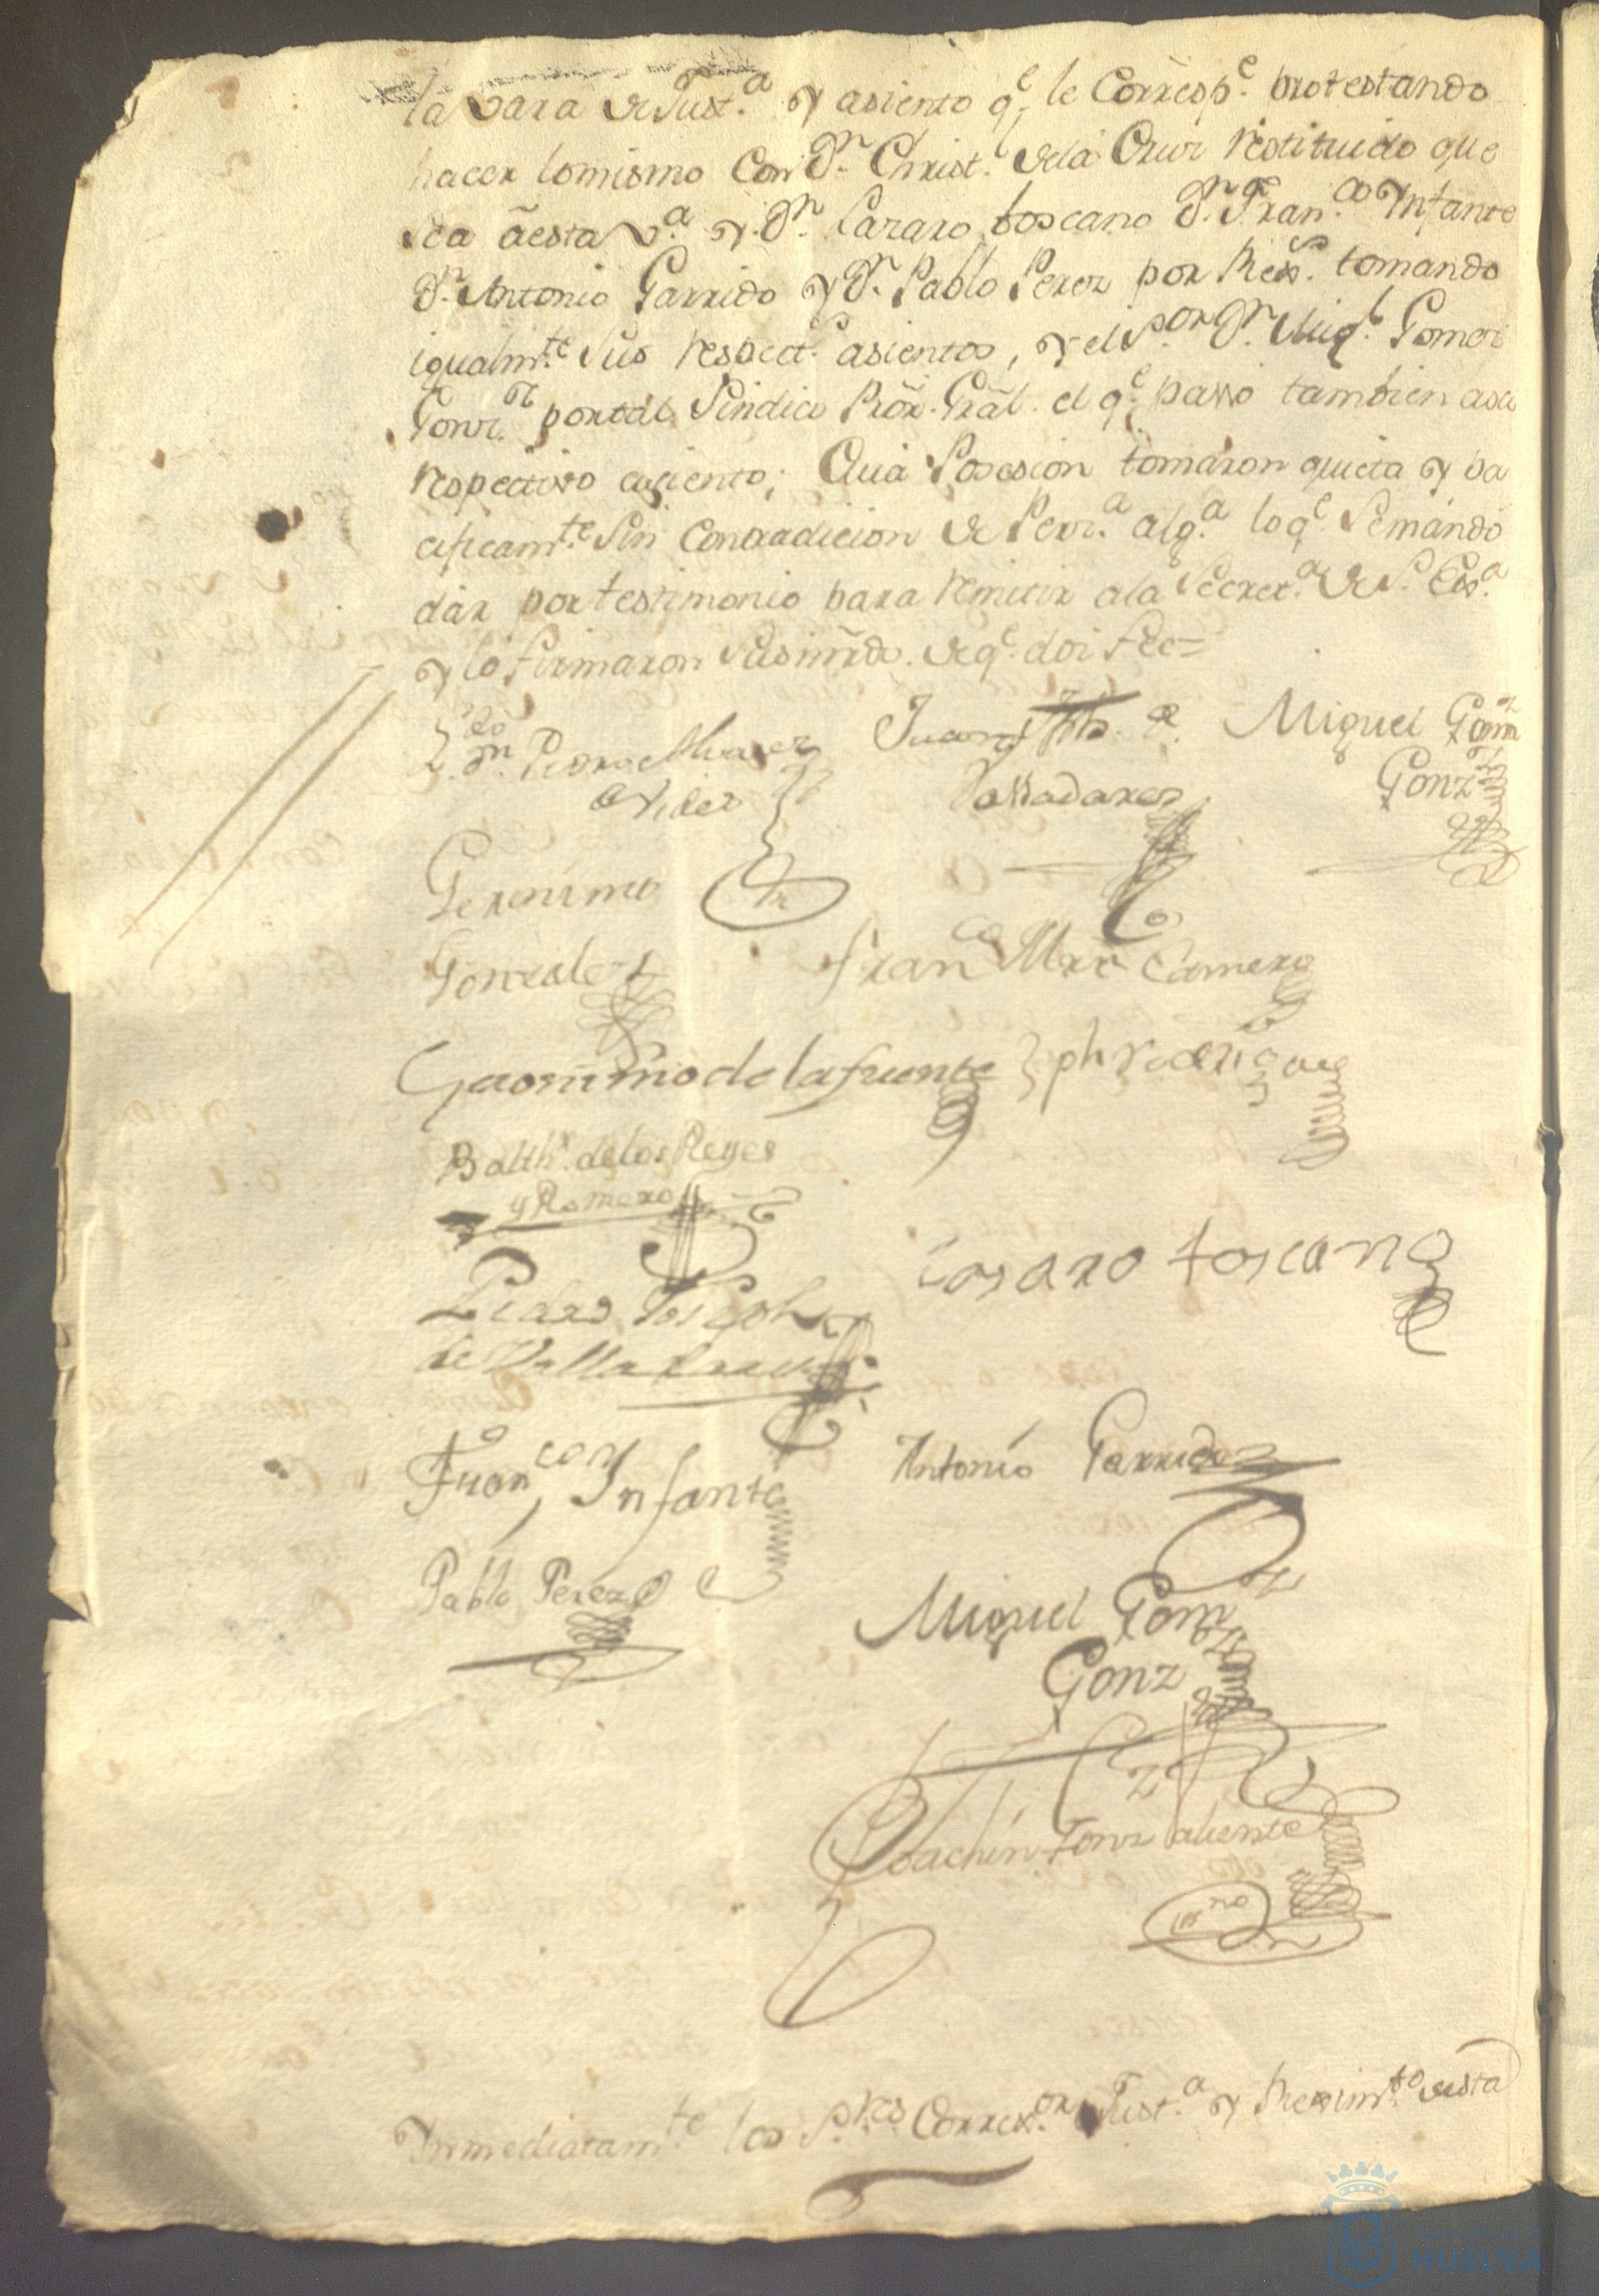 la vara de Just.ª y asiento q.e le Corresp.e protestando
hacer lo mismo Con D.n Christ. dela Cruz restituido que
sea ã esta V.ª y D.n Lazaro toscano D.n Fran.co Ynfante
D.n Antonio Garrido y D.n Pablo Perez por Rex.s tomando
igualm.te Sus respect.s asientos, y el S.or D.n Mig.l Gomez
Gonz.z por tal Sindico Prõr. Grãl. el q.e passó tambien asu
respectivo asiento; Cuia Posesion tomaron quieta y pa
cificam.te Sin Contradicion de Perz.ª alg.ª lo q.e Se mandó
dár por testimonio para remitir ala Secret.ª de S. Ex.ª
y lo firmaron Sus mrds. de q.e doi fee=
L.do D.n Pedro Alvarez
Juan Jph. de
Miguel Gom.z
Valladares
Gonz.z
Geronimo
Gonzalez
Fran.co Mrn Camero
Geronimo de la fuente
Jph rodrigue
Balth.r de los Reyes
y Romero
Lasaro toscano
Pedro Joseph
de Valladares
Fran.co Infante
Antonio Garrido
Pablo Perez
Miguel Gom.z
Gonz
Joachin Gonz Valiente
ss.no
Ynmediatam.te los S.res Correx.or Just.ª y Reximt.o desta
HUELVA